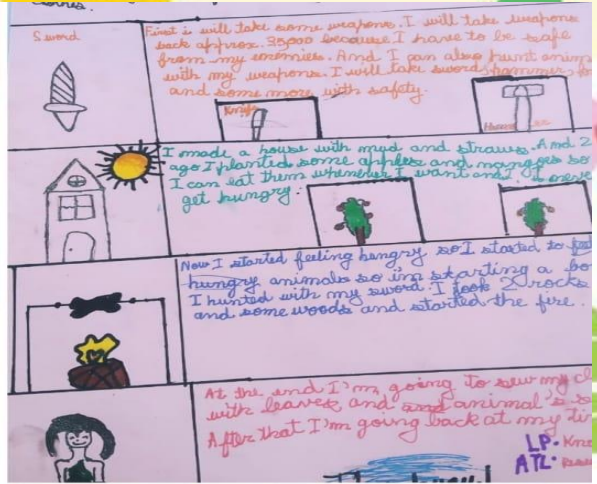 Sword
First is will take some weapons. I will take weapons
back approx. 35000 because I have to be safe
from my enemies. And I can also hunt anim
with my weapons. I will take sword, hammer,
and some more with safety.
Knife
I made a house with mud and straws. And 2
ago I planted some apples and mangoes so
I can eat them whenever I want and I
get hungry.
Now I started feeling hungry so I started to
hungry animals so im starting a bo
I hunted with my sword. I took 2 rocks
and some woods and started the fire.
At the end I'm going to sew my cl
with leaves and and animal's s
After that I'm going back at my ti
LP. Kno
ATL.